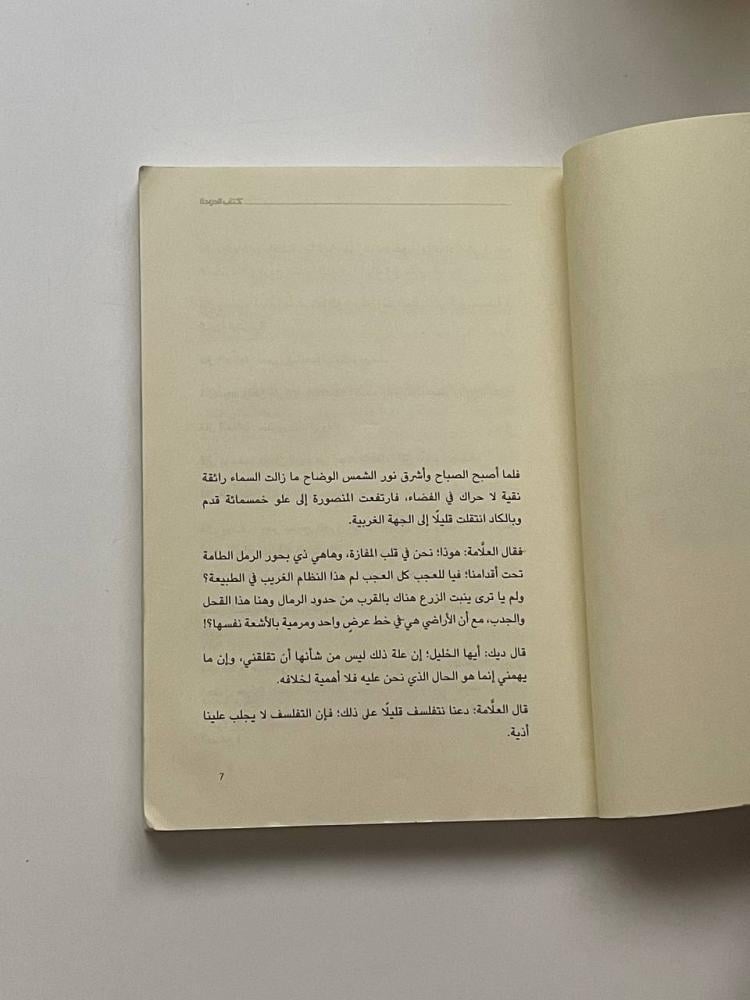 فلما أصبح الصباح وأشرق نور الشمس الوضاح ما زالت السماء رائقة
نقية لا حراك في الفضاء، فارتفعت المنصورة إلى علو خمسمائة قدم
وبالكاد انتقلت قليلًا إلى الجهة الغربية.
فقال العلَّامة: هوذا؛ نحن في قلب المفازة، وهاهي ذي بحور الرمل الطامة
تحت أقدامنا؛ فيا للعجب كل العجب لم هذا النظام الغريب في الطبيعة؟
ولم يا ترى ينبت الزرع هناك بالقرب من حدود الرمال وهنا هذا القحل
والجدب، مع أن الأراضي هي في خط عرضٍ واحد ومرمية بالأشعة نفسها؟!
قال ديك: أيها الخليل؛ إن علة ذلك ليس من شأنها أن تقلقني، وإن ما
يهمني إنما هو الحال الذي نحن عليه فلا أهمية لخلافه.
قال العلَّامة: دعنا نتفلسف قليلًا على ذلك؛ فإن التفلسف لا يجلب علينا
أذية.
7